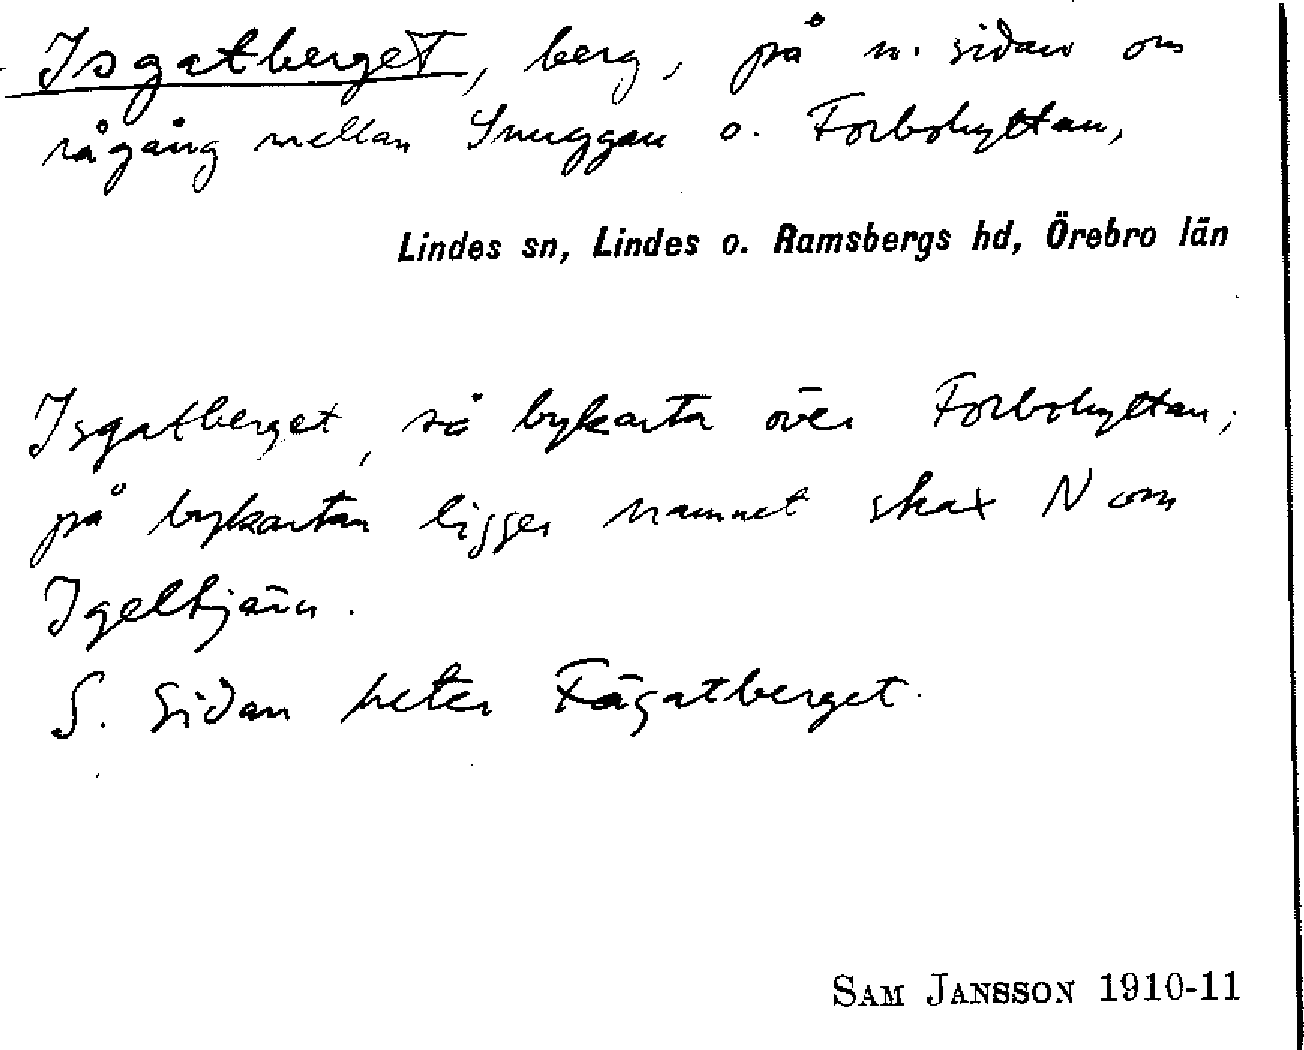 Isgatberget, berg, på n. sidan om
rågång mellan Snuggan o. Forbohyttan,
Lindes sn, Lindes o. Ramsbergs hd, Örebro län
Isgatberget, så bykarta över Forbohyttan;
på bykartan ligger namnet strax N om
Igeltjärn.
S. sidan heter Fägatberget.
SAM JANSSON 1910-11